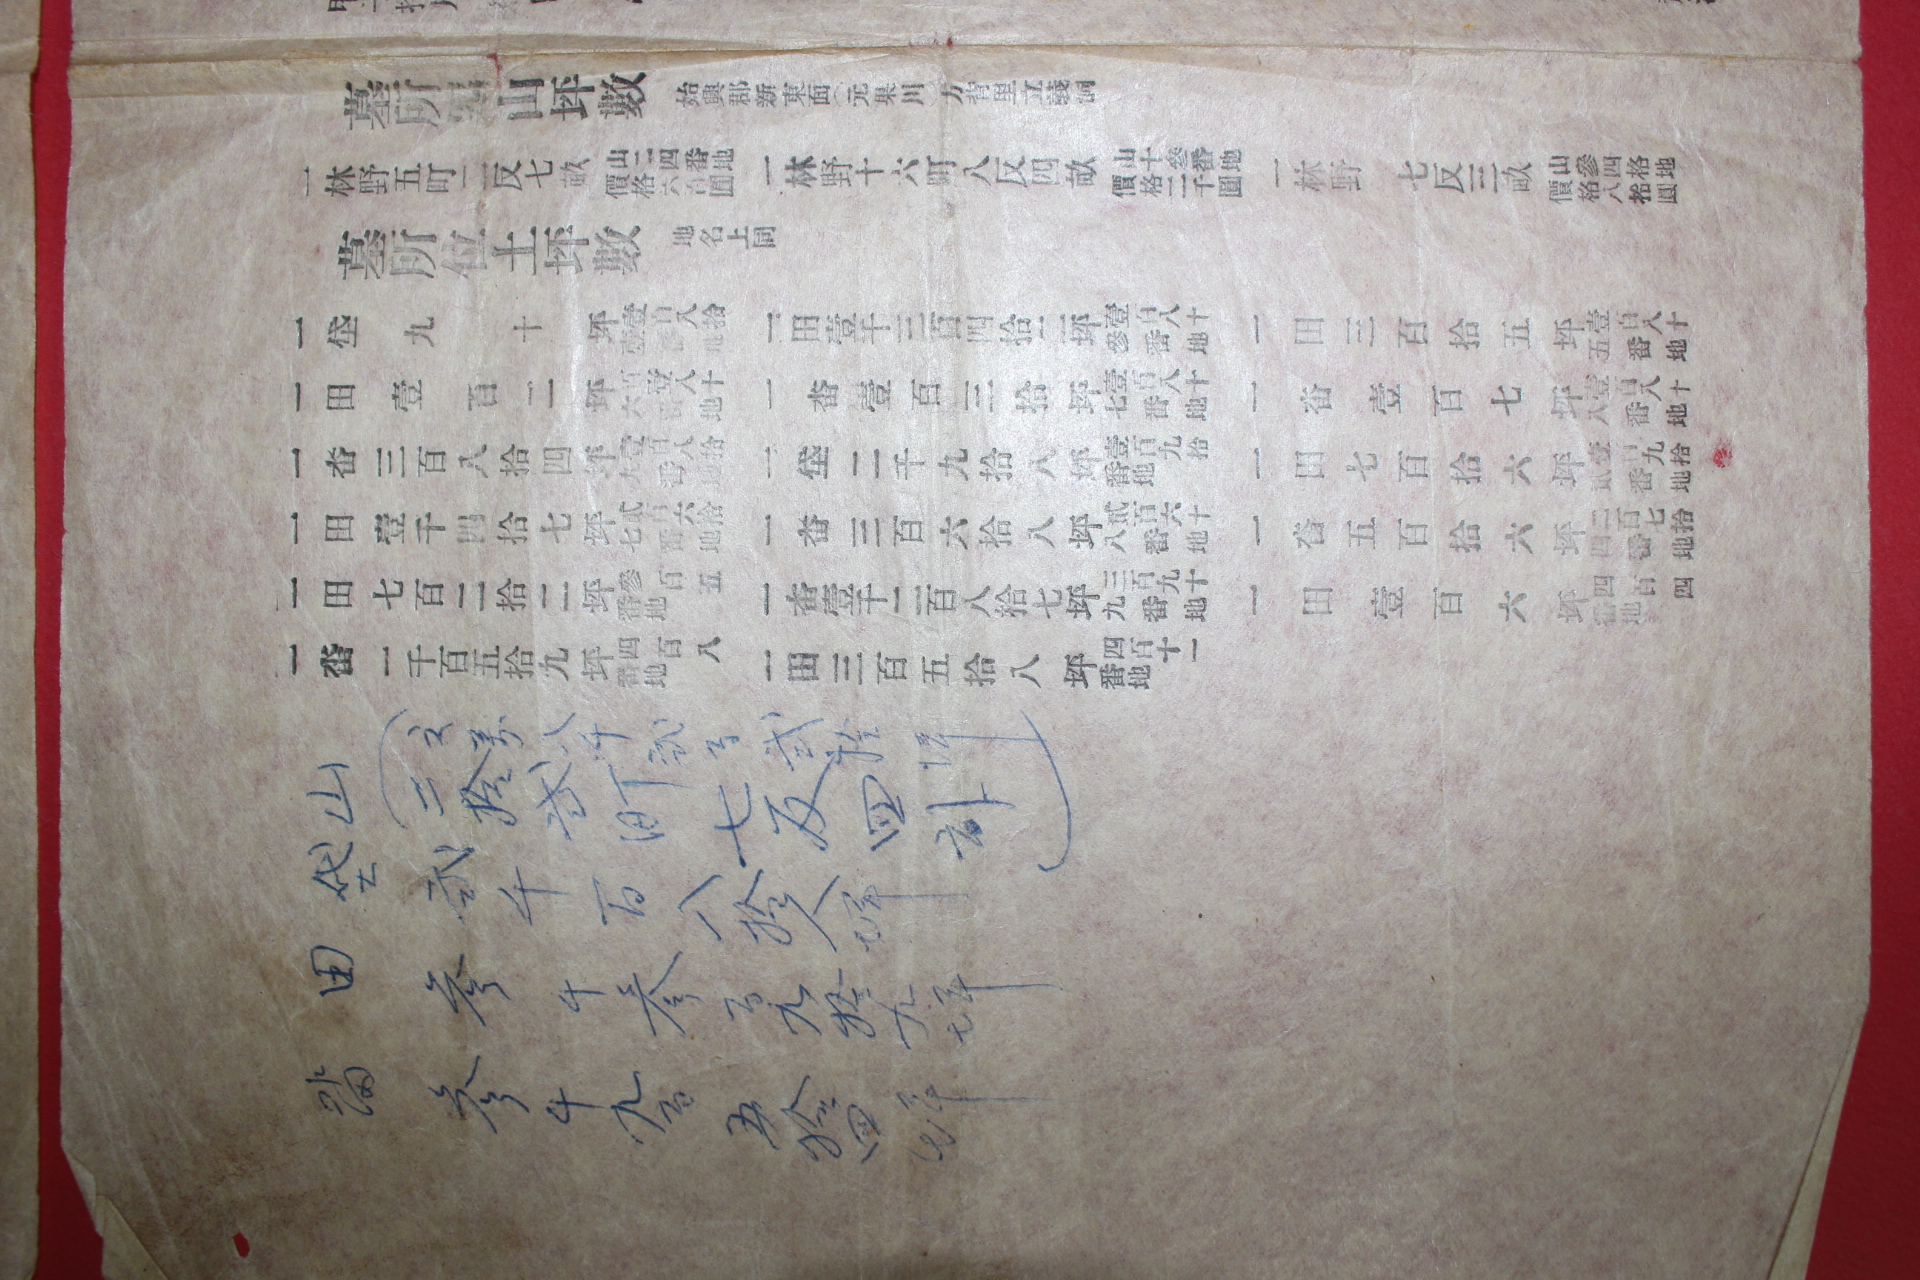 墓所 山坪數 始興郡新東面(元果川)方背里立義洞
一林野五町二反七畝 山二四番地 價格六百圓 一林野十六町八反四畝 山十參番地 價格二千圓 一林野 七反三畝 山參四格地 價格八拾圓
墓所位土坪數 地名上同
一垈九十坪 壹百八拾壹番地 一田壹千三百四拾二坪 壹百八十參番地 一田三百拾五坪 壹百八十五番地
一田壹百二坪 壹百八十六番地 一畓壹百三拾坪 壹百八十七番地 一畓壹百七坪 壹百八十八番地
一畓三百八拾四坪 壹百八拾九番地 一垈二千九拾八坪 壹百九拾番地 一田七百拾六坪 壹百九拾貳番地
一田壹千四拾七坪 貳百六拾七番地 一畓三百六拾八坪 貳百六十八番地 一畓五百拾六坪 二百七拾四番地
一田七百二拾二坪 參百五番地 一畓壹千二百八拾七坪 三百九十九番地 一田壹百六坪 四百四番地
一畓一千百五拾九坪 四百八番地 一田三百五拾八坪 四百十一番地
萬八千貳百貳拾坪
山 (二拾貳町七反四計)
垈 貳千百八拾八坪
田 參千參百九拾九坪
畓 參千九百五拾四坪